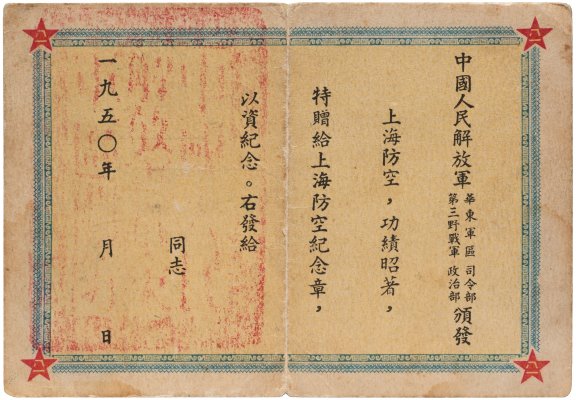 中國人民解放軍 華東軍區 司令部 第三野戰軍 政治部 頒發
上海防空，功績昭著，
特贈給上海防空紀念章，
以資紀念。右發給
同志
一九五〇年 月 日
八一
八一
八一
八一